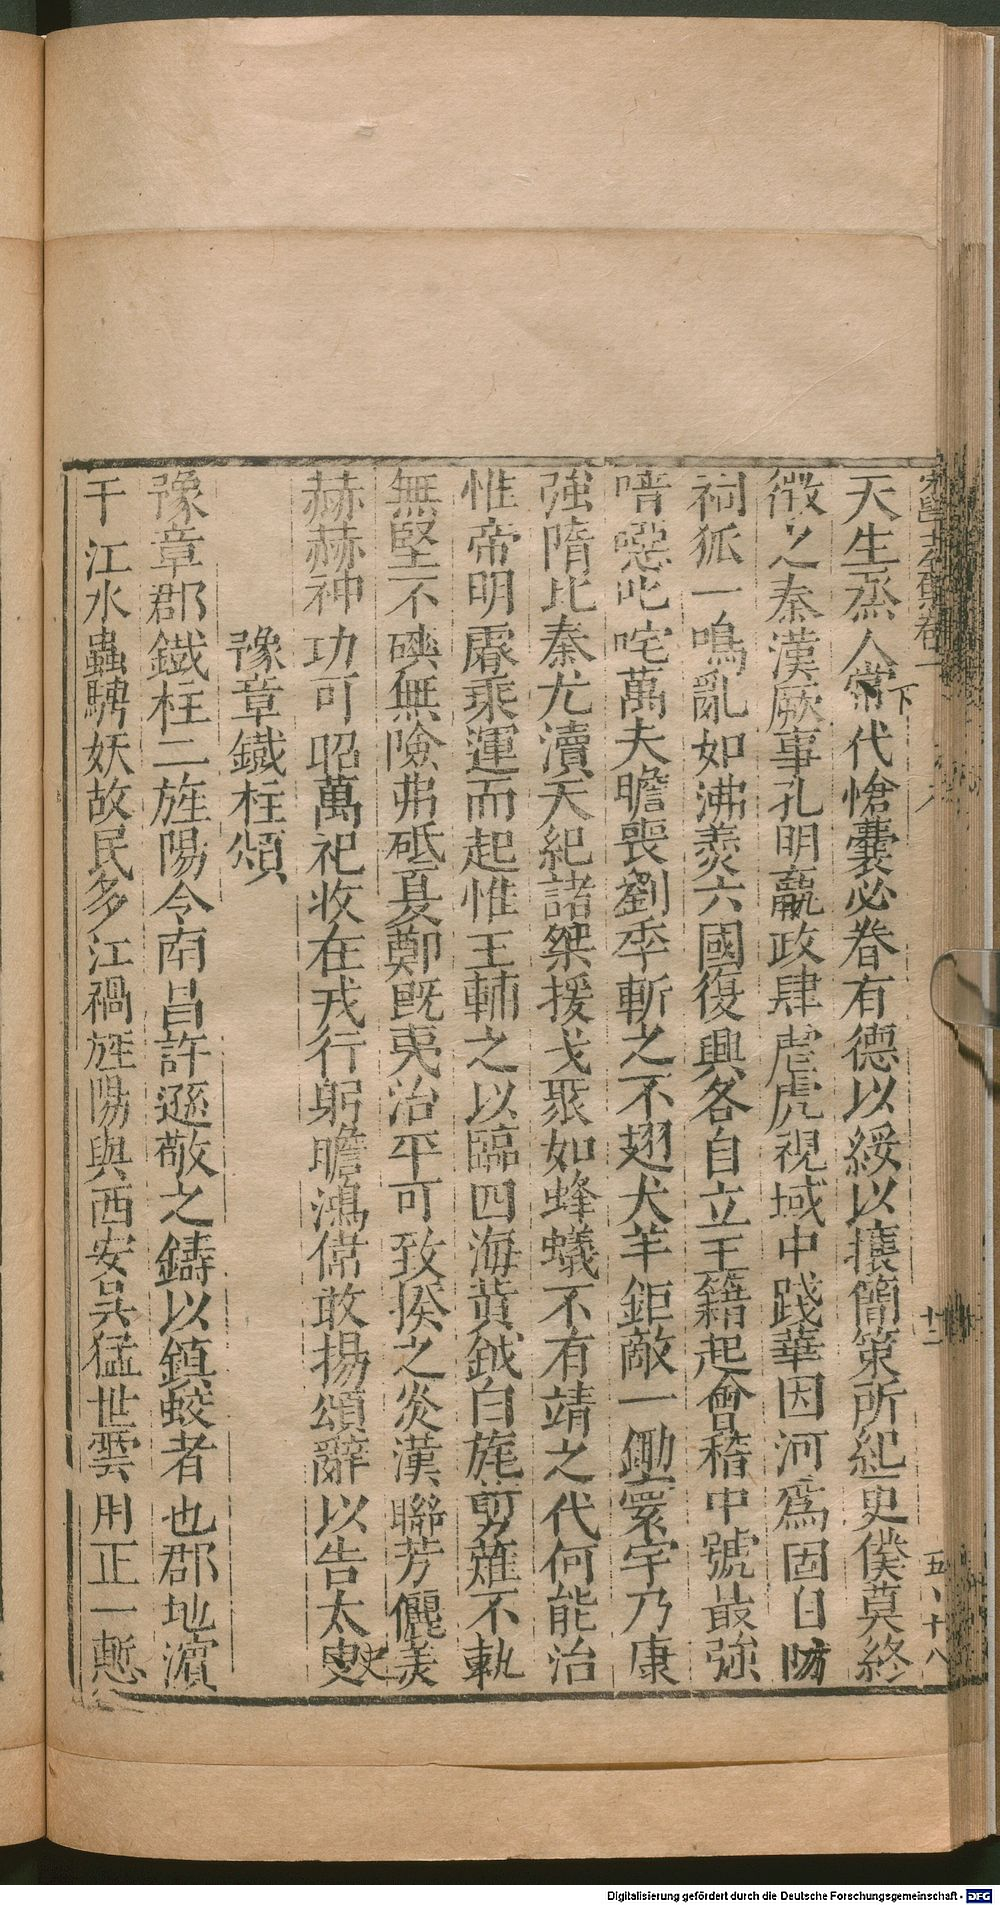 天生烝人常代愴囊必眷有德以綏以攘簡策所紀更僕莫終
微之秦漢厥事孔明嬴政肆虐虎視域中踐華因河爲固自防
祠狐一鳴亂如沸羹六國復興各自立王籍起會稽中號最強
喑噁叱咤萬夫瞻喪劉季斬之不翅犬羊鉅敵一鋤寰宇乃康
強隋比秦尤瀆天紀諸桀援戈聚如蜂蟻不有靖之代何能治
惟帝明睿乘運而起惟王輔之以臨四海黃鉞白旄剪薙不軌
無堅不碘無險弗砥夏鄭旣夷治平可致揆之炎漢聯芳儷美
赫赫神功可昭萬祀收在戎行躬瞻鴻偉敢揚頌辭以告太史
豫章鐵柱頌
豫章郡鐵柱二旌陽令南昌許遜敬之鑄以鎮蛟者也郡地濵
于江水蟲騁妖故民多江禍旌陽與西安吳猛世雲用正一慙
宋學士全集卷一
下
十二
五、十八
Digitalisierung gefördert durch die Deutsche Forschungsgemeinschaft - DFG